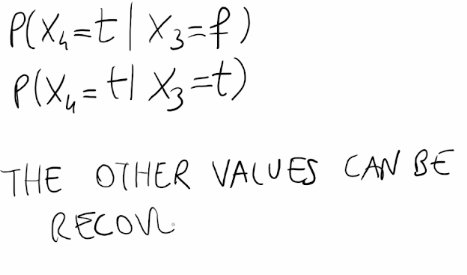 P(X₄=t | X₃=f)
P(X₄=t | X₃=t)
THE OTHER VALUES CAN BE
RECOV